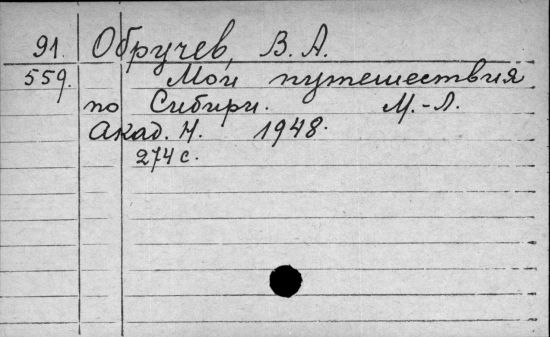 91 Обручев, В. А.
559. Мои путешествия
по Сибири. М.-Л.
Акад. Н. 1948.
274 с.